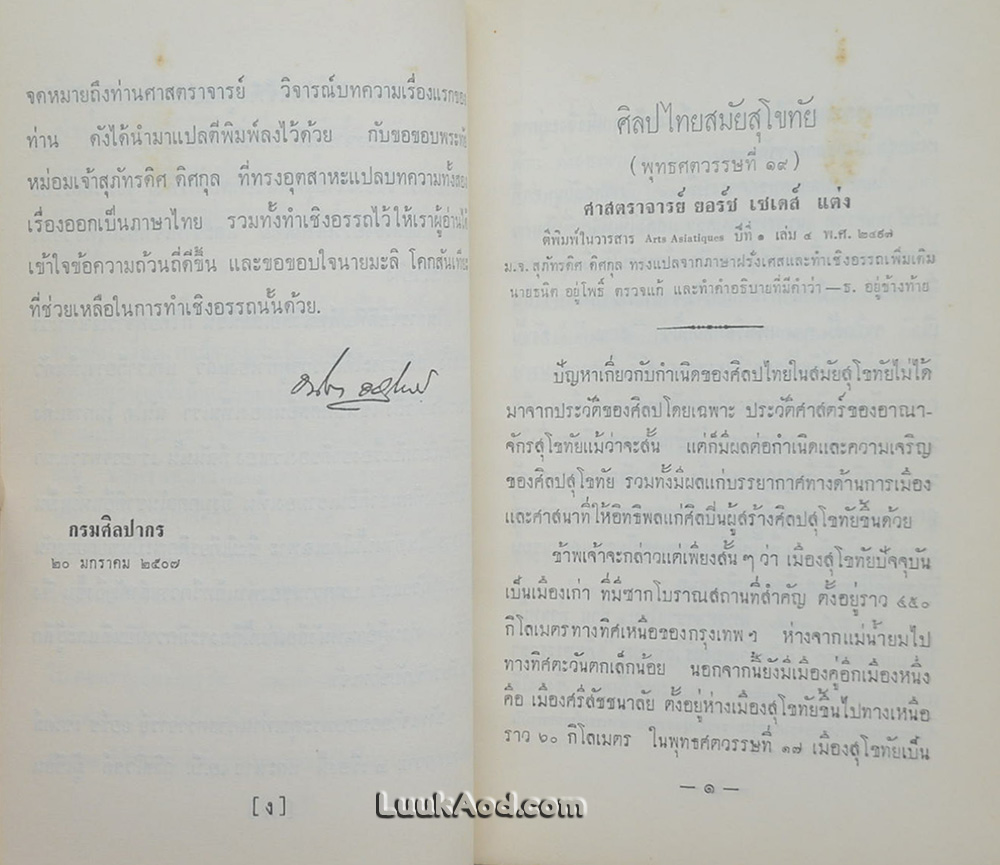 จดหมายถึงท่านศาสตราจารย์ วิจารณ์บทความเรื่องแรกของ
ท่าน ดังได้นำมาแปลตีพิมพ์ลงไว้ด้วย กับขอขอบพระทัย
หม่อมเจ้าสุภัทรดิศ ดิศกุล ที่ทรงอุตสาหะแปลบทความทั้งสอง
เรื่องออกเป็นภาษาไทย รวมทั้งทำเชิงอรรถไว้ให้เราผู้อ่านได้
เข้าใจข้อความถ้วนถี่ดีขึ้น และขอขอบใจนายมะลิ โคกสันเทียะ
ที่ช่วยเหลือในการทำเชิงอรรถนั้นด้วย.
กรมศิลปากร
๒๐ มกราคม ๒๕๐๗
[ง]
ศิลปไทยสมัยสุโขทัย
(พุทธศตวรรษที่ ๑๙)
ศาสตราจารย์ ยอร์ช เซเดส์ แต่ง
ตีพิมพ์ในวารสาร Arts Asiatiques ปีที่ ๑ เล่ม ๔ พ.ศ. ๒๔๙๗
ม.จ. สุภัทรดิศ ดิศกุล ทรงแปลจากภาษาฝรั่งเศสและทำเชิงอรรถเพิ่มเติม
นายธนิต อยู่โพธิ์ ตรวจแก้ และทำคำอธิบายที่มีคำว่า —ธ. อยู่ข้างท้าย
ปัญหาเกี่ยวกับกำเนิดของศิลปไทยในสมัยสุโขทัยไม่ได้
มาจากประวัติของศิลปโดยเฉพาะ ประวัติศาสตร์ของอาณา-
จักรสุโขทัยแม้ว่าจะสั้น แต่ก็มีผลต่อกำเนิดและความเจริญ
ของศิลปสุโขทัย รวมทั้งมีผลแก่บรรยากาศทางด้านการเมือง
และศาสนาที่ให้อิทธิพลแก่ศิลปินผู้สร้างศิลปสุโขทัยขึ้นด้วย
ข้าพเจ้าจะกล่าวแต่เพียงสั้น ๆ ว่า เมืองสุโขทัยปัจจุบัน
เป็นเมืองเก่า ที่มีซากโบราณสถานที่สำคัญ ตั้งอยู่ราว ๔๕๐
กิโลเมตรทางทิศเหนือของกรุงเทพ ฯ ห่างจากแม่น้ำยมไป
ทางทิศตะวันตกเล็กน้อย นอกจากนี้ยังมีเมืองคู่อีกเมืองหนึ่ง
คือ เมืองศรีสัชชนาลัย ตั้งอยู่ห่างเมืองสุโขทัยขึ้นไปทางเหนือ
ราว ๖๐ กิโลเมตร ในพุทธศตวรรษที่ ๑๗ เมืองสุโขทัยเป็น
— ๑ —
LuukAod.com